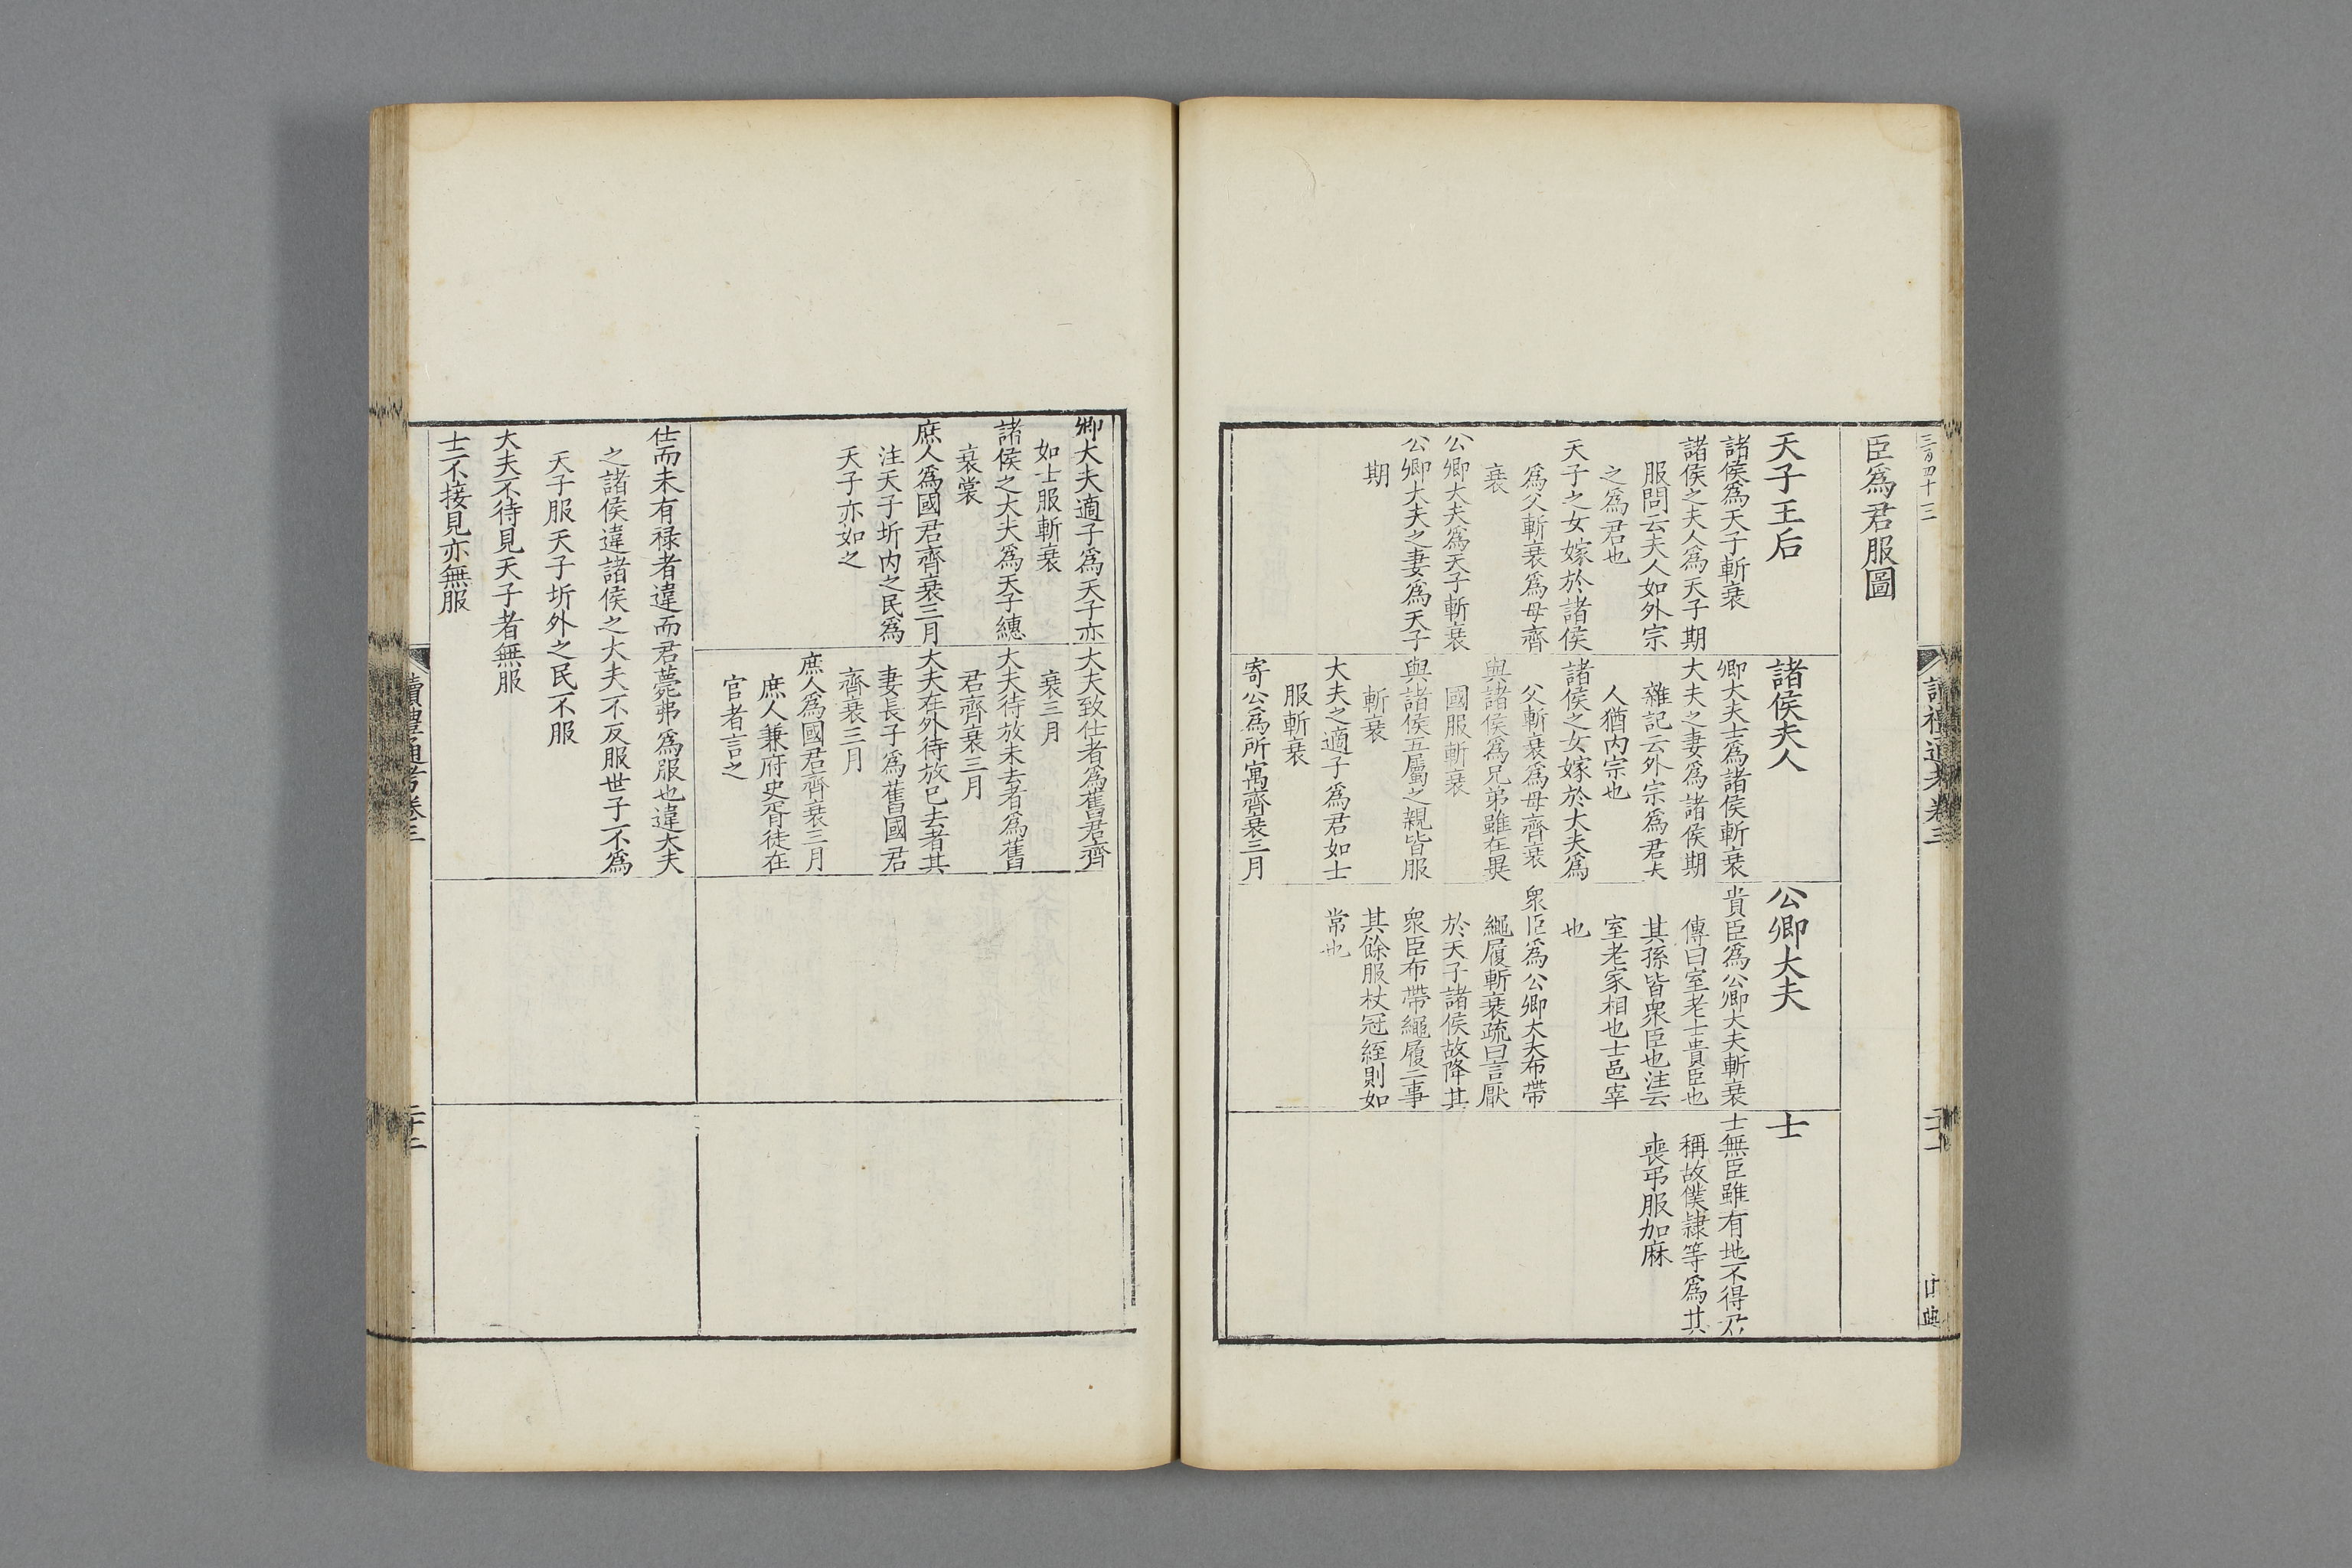 三百四十三
讀禮通考卷三
臣爲君服圖
天子王后
諸侯爲天子斬衰
諸侯之夫人爲天子期
服問云夫人如外宗
之爲君也
天子之女嫁於諸侯
爲父斬衰爲母齊
衰
公卿大夫爲天子斬衰
公卿大夫之妻爲天子
期
諸侯夫人
卿大夫士爲諸侯斬衰
大夫之妻爲諸侯期
雜記云外宗爲君夫
人猶内宗也
諸侯之女嫁於大夫爲
父斬衰爲母齊衰
與諸侯爲兄弟雖在異
國服斬衰
與諸侯五屬之親皆服
斬衰
大夫之適子爲君如士
服斬衰
寄公爲所寓齊衰三月
公卿大夫
貴臣爲公卿大夫斬衰
傳曰室老士貴臣也
其孫皆衆臣也注云
室老家相也士邑宰
也
衆臣爲公卿大夫布帶
繩屨斬衰疏曰言厭
於天子諸侯故降其
衆臣布帶繩屨二事
其餘服杖冠絰則如
常也
士
士無臣雖有地不得君
稱故僕隸等爲其
喪弔服加麻
卿大夫適子爲天子亦
如士服斬衰
諸侯之大夫爲天子繐
衰裳
庶人爲國君齊衰三月
注天子圻内之民爲
天子亦如之
大夫致仕者爲舊君齊
衰三月
大夫待放未去者爲舊
君齊衰三月
大夫在外待放已去者其
妻長子爲舊國君
齊衰三月
庶人爲國君齊衰三月
庶人兼府史胥徒在
官者言之
仕而未有禄者違而君薨弗爲服也違大夫
之諸侯違諸侯之大夫不反服世子不爲
天子服天子圻外之民不服
大夫不待見天子者無服
士不接見亦無服
讀禮通考卷三
二十二